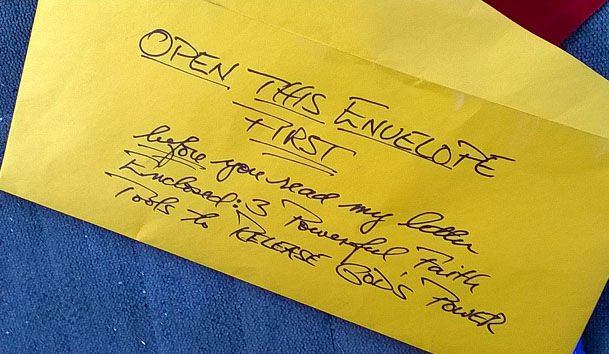 OPEN THIS ENVELOPE
FIRST
before you read my letter
Enclosed: 3 Powerful, Faith
Tools to RELEASE GOD'S POWER